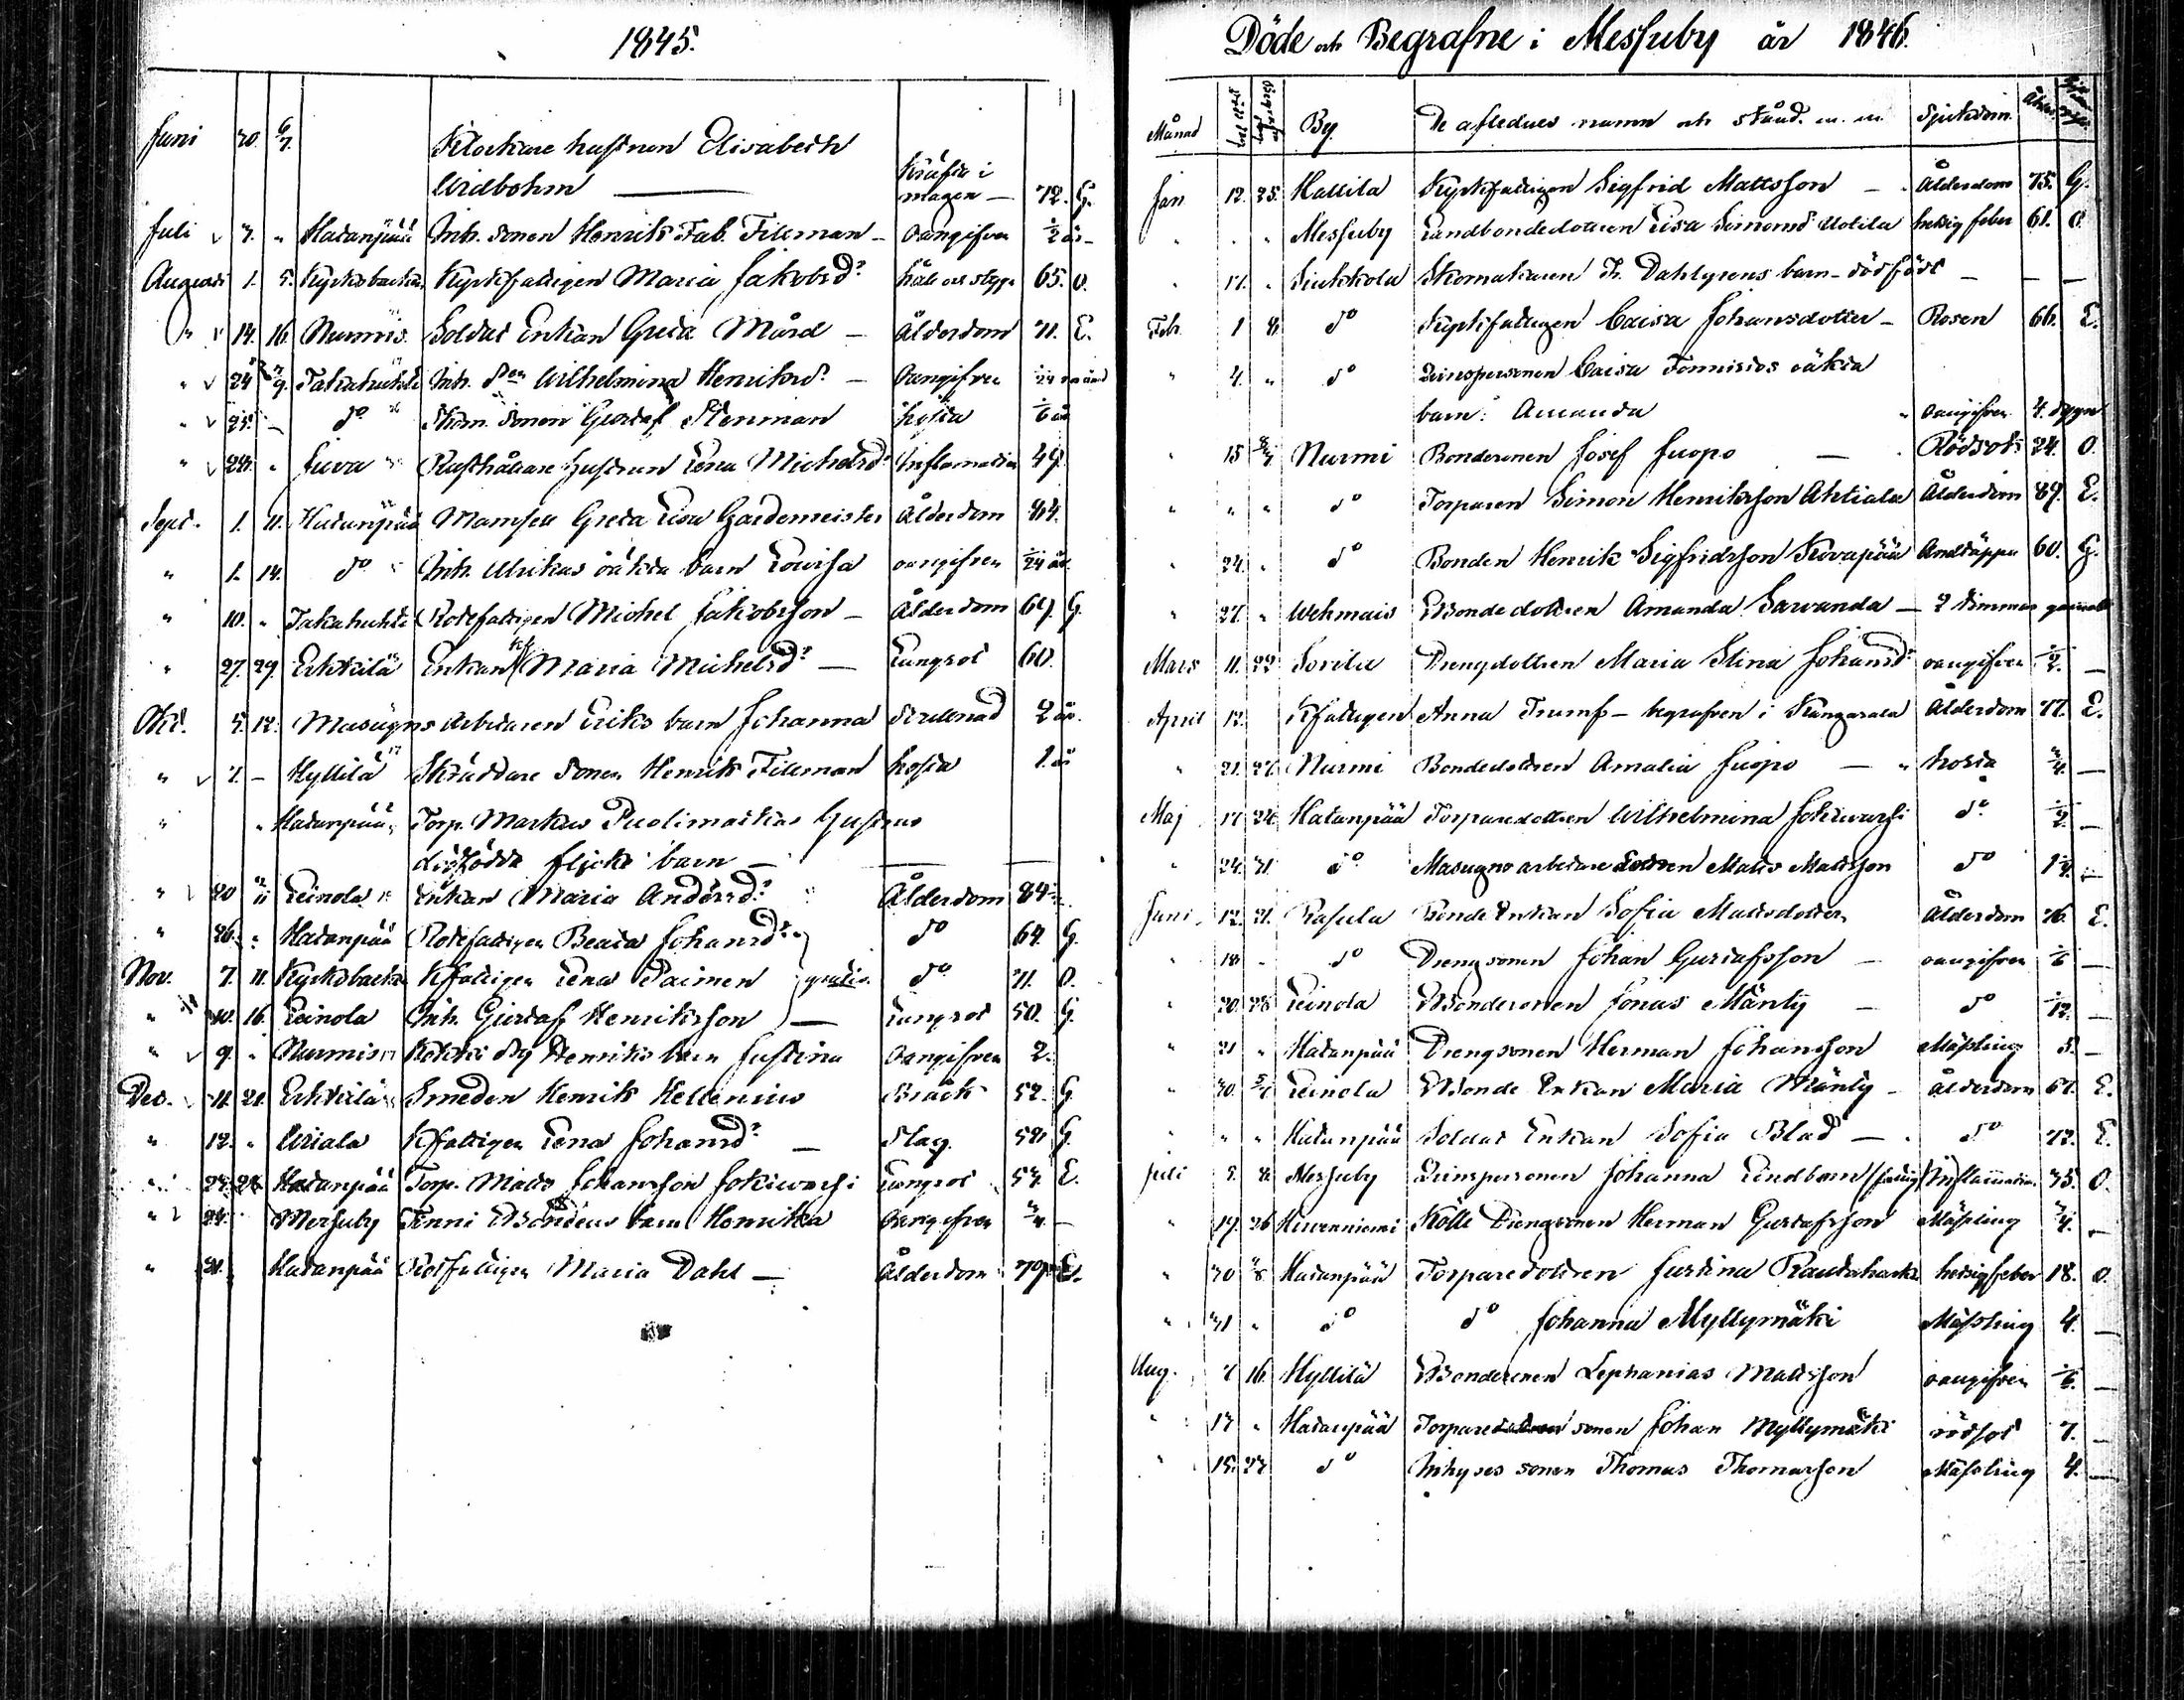 1845.
Juni 30. 6/7. Klockare hustrun Elisabeth
Widbohm — Kräfta i magen — 72. G.
Juli 3. " Hatanpää Inh. sonen Henrik Fab. Tillman — oangifven 1/2 år —
Augusti 1. 5. Kyrkobacka Kyrkfattigen Maria Jakobsd? håll och styng 65. O.
" 14. 16. Nurmis. Soldat Enkan Greta Mård — Ålderdom 71. E.
" 24 Takahuhti Inh. dren Wilhelmina Henriksd? — oangifven
" 25. — do sonen Gustaf Stenman hosta 1/6 år
" 28. " Juva Rusthållare hustrun Lena Michelsd? Inflamation 49.
Sept. 1. 11. Hatanpää Mamsell Greta Lisa Gardemeister Ålderdom 84.
" 1. 14. do Inh. Ulrikas oäkta barn Lovisa oangifven 1/24 år
" 10. " Takahuhti Rotefattigen Michel Jakobsson — Ålderdom 69. G.
" 27. 29. Erkkilä Enkan Maria Michelsd? — Lungsot 60.
Okt. 5. 12. Masugns Arbetaren Eriks barn Johanna 2 år.
" 7. — Hyllilä Skräddare sonen Henrik Tillman hosta 1. år
" " Hatanpää Torp. Markus Puolimatkas hustrus
dödfödda flicke barn — — —
" 20 2/11 Leinola Enkan Maria Andersd? Ålderdom 84
" 26. " Hatanpää Rotefattigen Beata Johansd? do 64. G.
Nov. 7. 11. Kyrkobacka Kfattigen Lena Paimen gratis. do 71. O.
" 10. 16. Leinola Inh. Gustaf Henriksson — Lungsot 50. G.
" 9. " Nurmis Henriks barn Justina oangifven 2.
Dec. 11. 21. Erkkilä Smeden Henrik Hellenius Bråck 52. G.
" 12. " Wiala Kfattigen Lena Johansd? — Slag. 58. G.
" 23. 28. Hatanpää Torp. Matts Johansson Jokiwarsi Lungsot 53. E.
" 24. Messuby barn Henrika oangifven 3/4. —
" 31. Hatanpää Rotfattigen Maria Dahl — Ålderdom 79. E.
Döde och Begrafne i Messuby år 1846.
Månad By. De aflednes namn och stånd. m. m. Sjukdom. Ålder
Jan 12. 25. Hallila Kyrkfattigen Sigfrid Mattsson — Ålderdom 75. G.
" " " Messuby Landbondedottren Lisa Simonsd Uotila hetsig feber 61. O.
" 17. " Liukkola Skomakaren Th. Dahlgrens barn — dödfödt — — —
Feb. 1 8. do Kyrkfattigen Caisa Johansdotter — Rosen 66. E.
" 4. " do Qvinspersonen Caisa oäkta
barn: Amanda " oangifven 4. dygn
" 15 Nurmi Bondesonen Josef Juopo — Rödsot 24. O.
" " " do Torparen Simon Henriksson Ahtiala Ålderdom 89. E.
" 24. " do Bonden Henrik Sigfridsson Kivapää Andtäppa 60. G.
" 27. " Wehmais Bonde dottren Amanda Sarvanda — 2 timmar gammal
Mars 11. 22 Sorila Drengdottren Maria Stina Johansd? oangifven 1/2. —
April 12. Kfattigen Anna Trumf — begrafven i Kangasala Ålderdom 77. E.
" 21. 26 Nurmi Bondedottren Amalia Juopo — " hosta 3/4. —
Maj 17 24 Hatanpää Torparedottren Wilhelmina Jokiwarsi do 1/2. —
" 24. 31. do Masugns arbetare sonen Matts Mattsson do —
Juni 12. 21. Rasula Bonde Enkan Sofia Mattsdotter Ålderdom 76. E.
" 18 " do Drengsonen Johan Gustafsson — oangifven 1/6 —
" 20. 28 Leinola Bondesonen Jonas Mänty — do 1/12. —
" 21 " Hatanpää Drengsonen Herman Johansson Mässling 5. —
" 30. 5/7 Leinola Bonde Enkan Maria Mänty — Ålderdom 67. E.
" " " Hatanpää Soldat Enkan Sofia Blad — do 72. E.
Juli 5. 8. Messuby Qvinspersonen Johanna Lindbom Inflammation 35. O.
" 19. 26 Drengsonen Herman Gustafsson Mässling 3/4. —
" 30 2/8 Hatanpää Torparedottren Justina Rautaharkko hetsig feber 18. O.
" 31 " do do Johanna Myllymäki Mässling 4. —
Aug. 7 16. Hyllilä Bondesonen Zephanias Mattsson oangifven 1/6. —
" 13 " Hatanpää Torpare sonen Johan Myllymäki rödsot 7. —
" 15. 23 do Inhyses sonen Thomas Thomasson Mässling 4. —